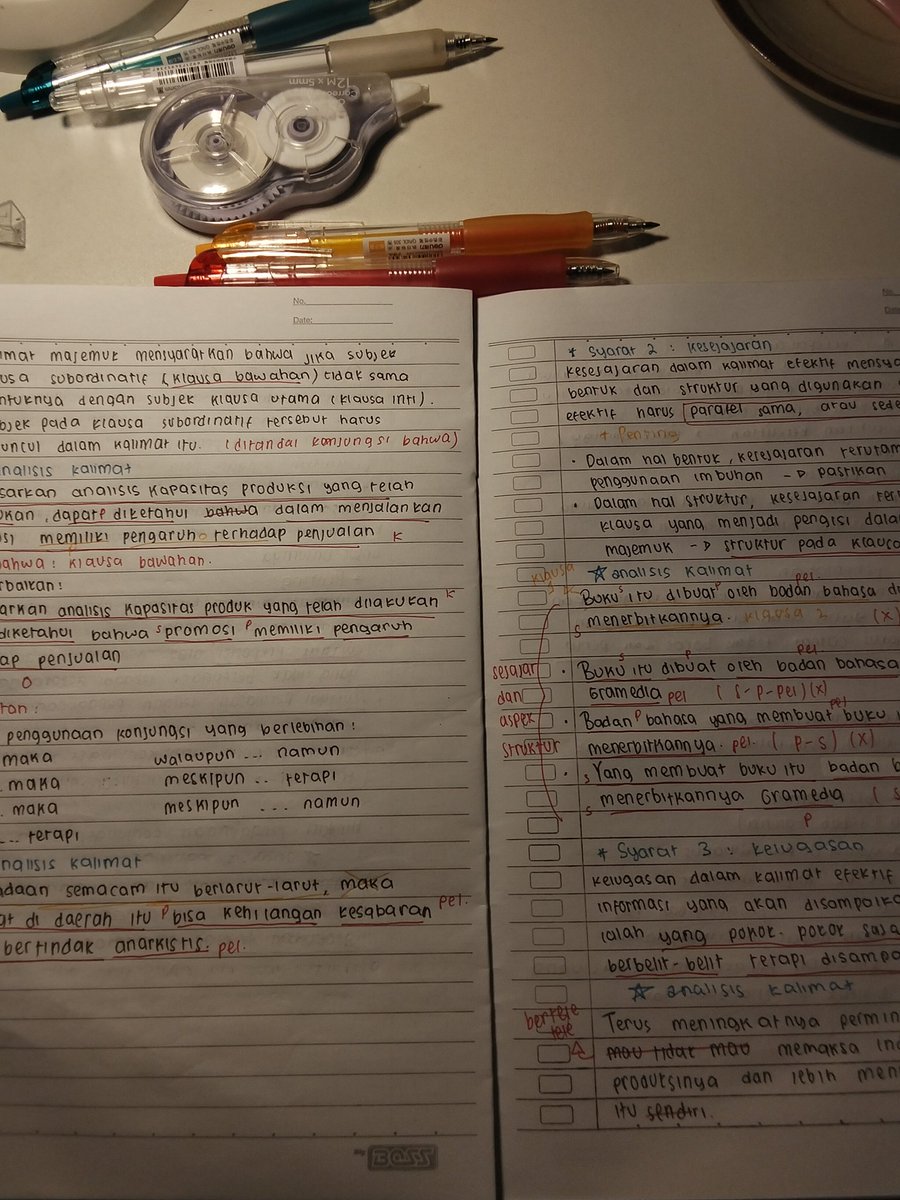 12M x 5mm
No.
Date:
mat majemuk mensyaratkan bahwa jika subjek
usa subordinatif (klausa bawahan) tidak sama
ntuknya dengan subjek klausa utama (klausa inti).
bjek pada klausa subordinatif tersebut harus
uncul dalam kalimat itu. (ditandai konjungsi bahwa)
nalisis kalimat
sarkan analisis kapasitas produksi yang telah
ukan, dapat P diketahui bahwa dalam menjalankan
si memiliki pengaruh O terhadap penjualan K
ahwa: klausa bawahan.
rbaikan:
arkan analisis kapasitas produk yang telah dilakukan K
diketahui bahwa S promosi P memiliki pengaruh
ap penjualan
O
tan:
penggunaan konjungsi yang berlebihan:
maka walaupun ... namun
. maka meskipun .. tetapi
. maka meskipun ... namun
... tetapi
nalisis kalimat
adaan semacam itu berlarut-larut, maka
at di daerah itu P bisa kehilangan kesabaran pel.
bertindak anarkistis. pel.
BOSS
* Syarat 2 : kesejajaran
kesejajaran dalam kalimat efektif mensya
bentuk dan struktur yang digunakan
efektif harus paralel sama, atau sede
+ Penting
• Dalam hal bentuk, kesejajaran terutam
penggunaan imbuhan -> pastikan
• Dalam hal struktur, kesejajaran ter
klausa yang menjadi pengisi dala
majemuk -> struktur pada klausa
☆ analisis kalimat
klausa
• Buku S itu dibuat P oleh badan bahasa pel. d
S menerbitkannya. klausa 2 (x)
sejajar dan aspek struktur
• Buku S itu dibuat P oleh badan bahasa pel
Gramedia pel ( S-P-pel) (x)
• Badan P bahasa yang membuat buku pel
menerbitkannya. pel. ( P-S) (x)
• S Yang membuat buku itu badan b
S menerbitkannya Gramedia ( S
P
* Syarat 3 : kelugasan
kelugasan dalam kalimat efektif
informasi yang akan disampaika
ialah yang pokok-pokok saja
berbelit-belit tetapi disampa
☆ analisis kalimat
bertele tele
Terus meningkatnya permin
mau tidak mau memaksa in
produksinya dan lebih men
itu sendiri.